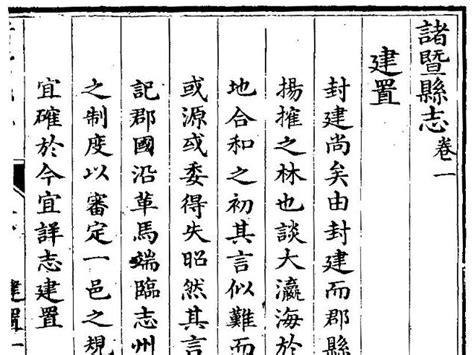 諸暨縣志 卷一
建置
封建尚矣由封建而郡縣
揚搉之林也談大瀛海於
地合和之初其言似難而
或源或委得失昭然其言
記郡國沿革馬端臨志州
之制度以審定一邑之規
宜確於今宜詳志建置
建置一